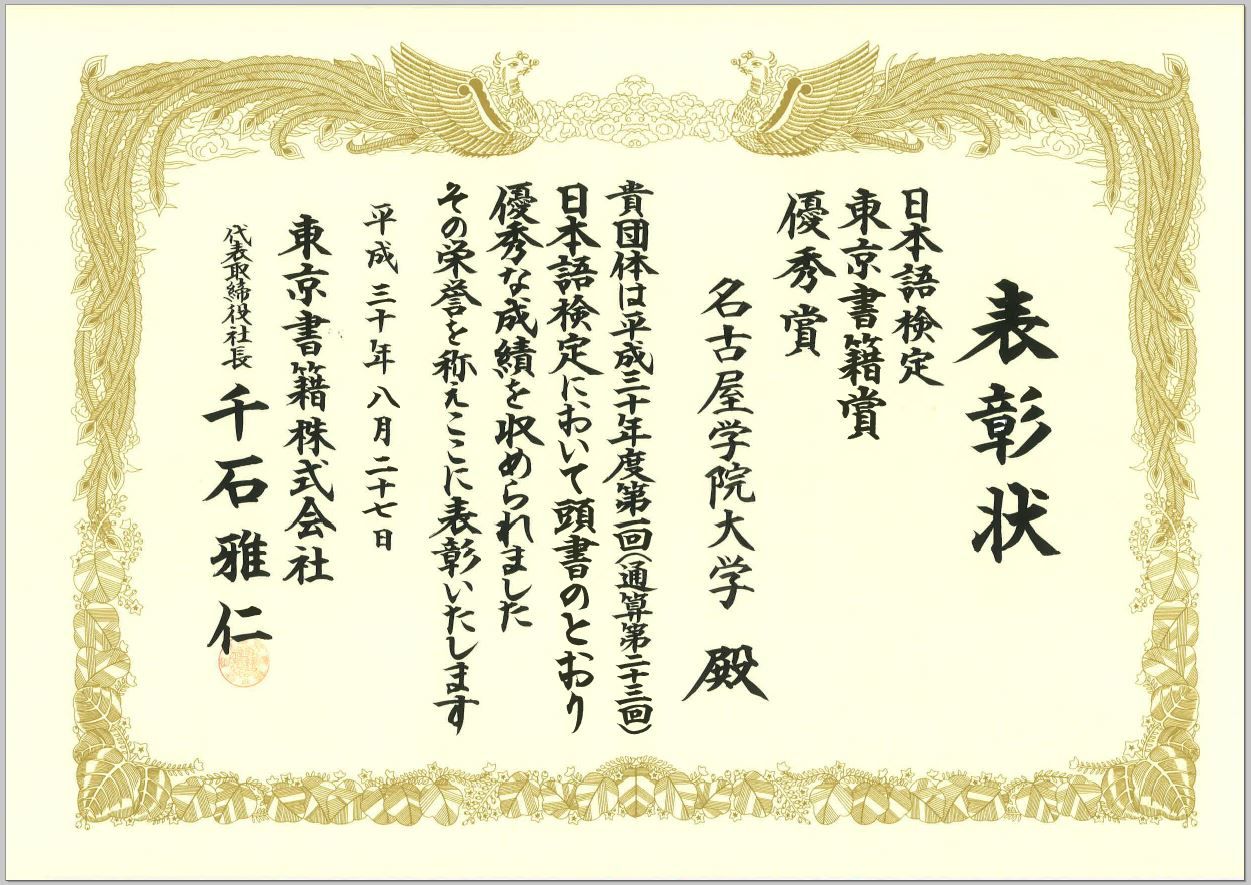 表彰状
日本語検定
東京書籍賞
優秀賞
名古屋学院大学 殿
貴団体は平成三十年度第一回(通算第二十三回)
日本語検定において頭書のとおり
優秀な成績を収められました
その栄誉を称えここに表彰いたします
平成三十年八月二十七日
東京書籍株式会社
代表取締役社長 千石雅仁